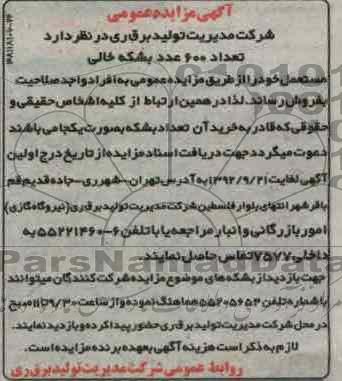 آگهی مزایده عمومی
شرکت مدیریت تولید برق ری در نظر دارد
تعداد ۶۰۰ عدد بشکه خالی
مستعمل خود را از طریق مزایده عمومی به افراد واجد صلاحیت
بفروش رساند. لذا در همین ارتباط از کلیه اشخاص حقیقی و
حقوقی که قادر به خرید آن تعداد بشکه بصورت یکجا می باشند
دعوت میگردد جهت دریافت اسناد مزایده از تاریخ درج اولین
آگهی لغایت ۱۳۹۲/۹/۲۱ به آدرس تهران-شهرری-جاده قدیم قم
باقرشهر انتهای بلوار فلسطین شرکت مدیریت تولید برق ری (نیروگاه گازی)
امور بازرگانی و انبار مراجعه یا با تلفن ۶-۵۵۲۲۱۴۶۰ به
داخلی ۷۵۷۷ تماس حاصل نمایند.
جهت بازدید از بشکه های موضوع مزایده شرکت کنندگان میتوانند
با شماره تلفن ۵۵۲۰۵۶۵۳ هماهنگ نموده و از ساعت ۹/۳۰ تا ۱۱ صبح
در محل شرکت مدیریت تولید برق ری حضور پیدا کرده و بازدید نمایند.
لازم به ذکر است هزینه آگهی بعهده برنده مزایده است.
روابط عمومی شرکت مدیریت تولید برق ری
ParsNamadData